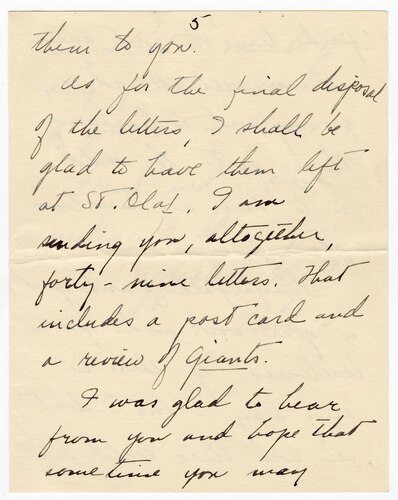 5
them to you.
As for the final disposal
of the letters, I shall be
glad to have them left
at St. Olaf. I am
sending you, altogether,
forty-nine letters. That
includes a post card and
a review of Giants.
I was glad to hear
from you and hope that
sometime you may